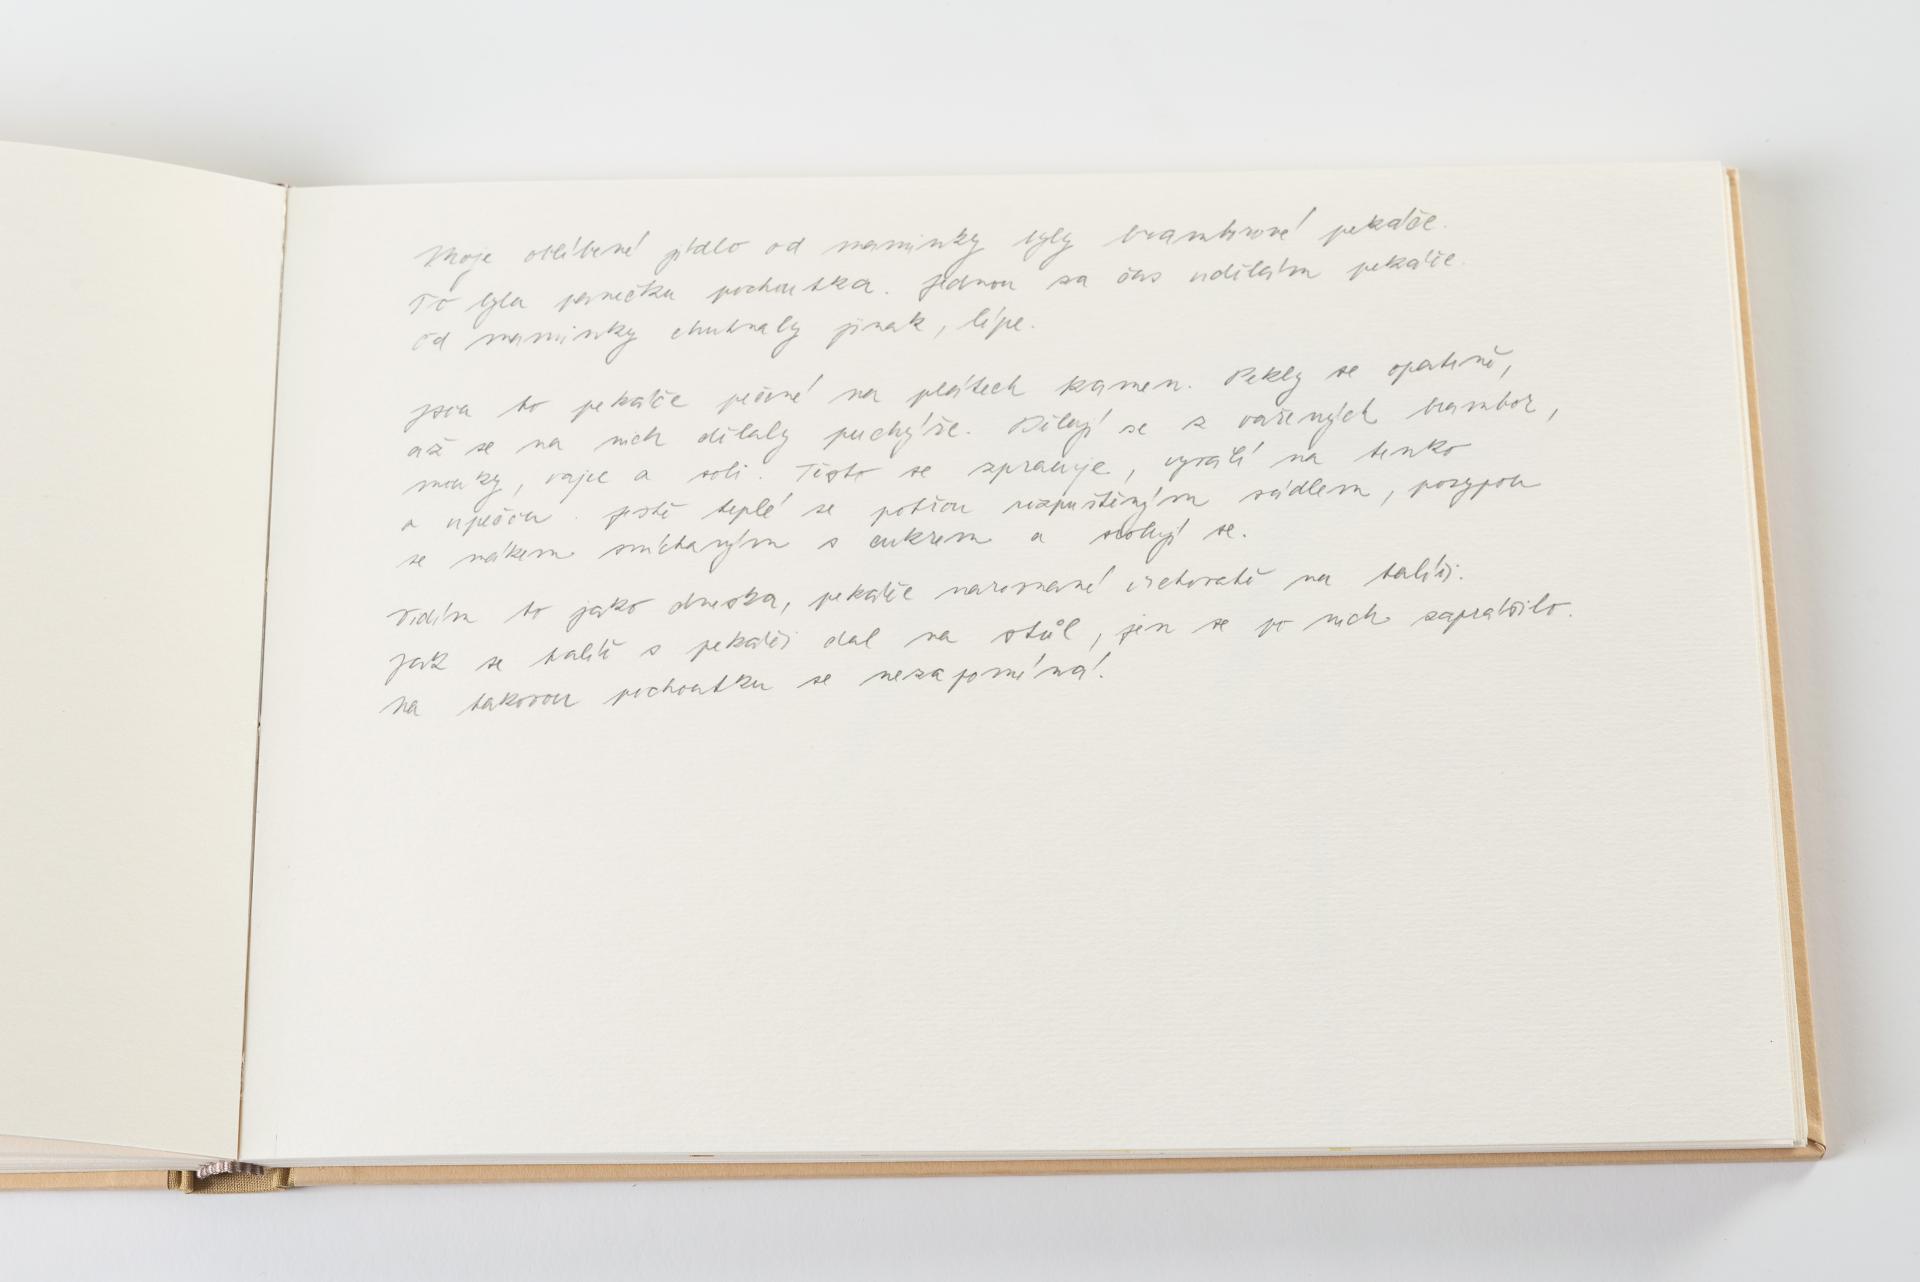 Moje oblíbené jídlo od maminky byly bramborové pekáče.
To byla panečku pochoutka. Jednou za čas udělám pekáče.
Od maminky chutnaly jinak, lípe.
Jsou to pekáče pečené na plátech kamen. Pekly se opatrně,
až se na nich dělaly puchýře. Dělají se z vařených brambor,
mouky, vajec a soli. Těsto se zpracuje, vyválí na tenko
a upečou. Ještě teplé se potřou rozpuštěným sádlem, posypou
se mákem smíchaným s cukrem a stohují se.
Vidím to jako dneska, pekáče narovnané vrchovatě na talíři.
Jak se talíř s pekáči dal na stůl, jen se po nich zaprášilo.
Na takovou pochoutku se nezapomíná!